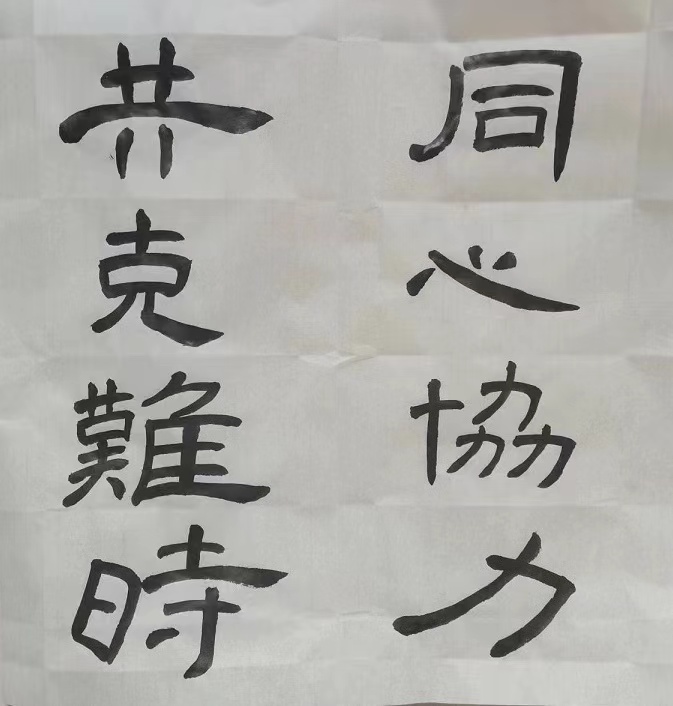 同心協力
共克難時